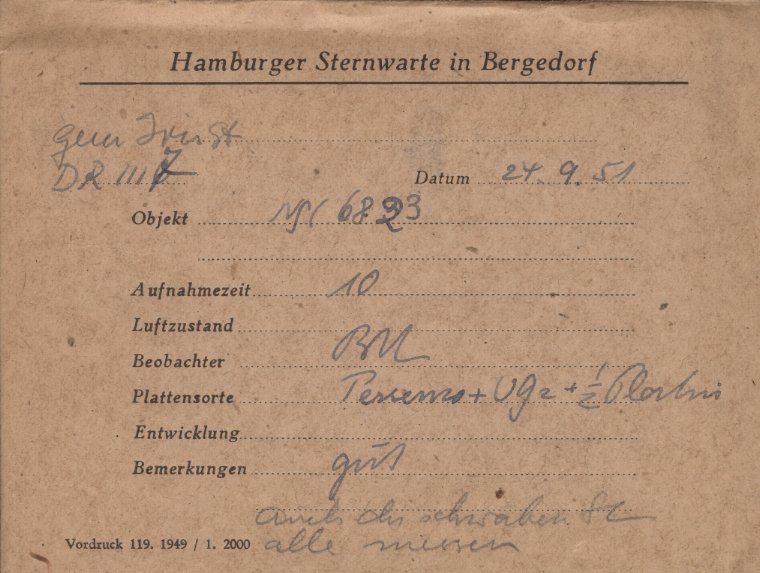 Hamburger Sternwarte in Bergedorf
DR III 7
Datum 24. 9. 51
Objekt NGC 6823
Aufnahmezeit 10
Luftzustand
Beobachter
Plattensorte + UG2 + 1/2
Entwicklung
Bemerkungen gut
auch die schwachen St
alle messen
Vordruck 119. 1949 / 1. 2000